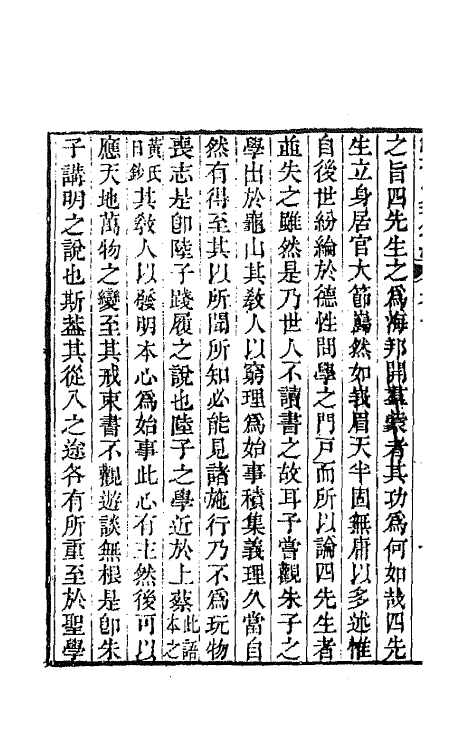 之旨四先生之爲海邦開羣蒙者其功爲何如哉四先
生立身居官大節巋然如峩眉天半固無庸以多述惟
自後世紛綸於德性問學之門戸而所以論四先生者
並失之雖然是乃世人不讀書之故耳予嘗觀朱子之
學出於龜山其敎人以窮理爲始事積集義理久當自
然有得至其以所聞所知必能見諸施行乃不爲玩物
喪志是卽陸子踐履之說也陸子之學近於上蔡此語本之
黃氏日鈔其敎人以發明本心爲始事此心有主然後可以
應天地萬物之變至其戒束書不觀遊談無根是卽朱
子講明之說也斯葢其從入之途各有所重至於聖學